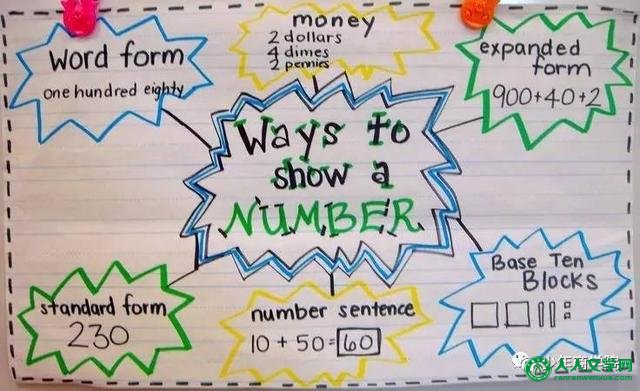 Word form
one hundred eighty
money
2 dollars
4 dimes
2 pennies
expanded
form
900+40+2
Ways to
show a
NUMBER
standard form
230
number sentence
10 + 50 = 60
Base Ten
Blocks
人人文学网
renrenwenxue.com